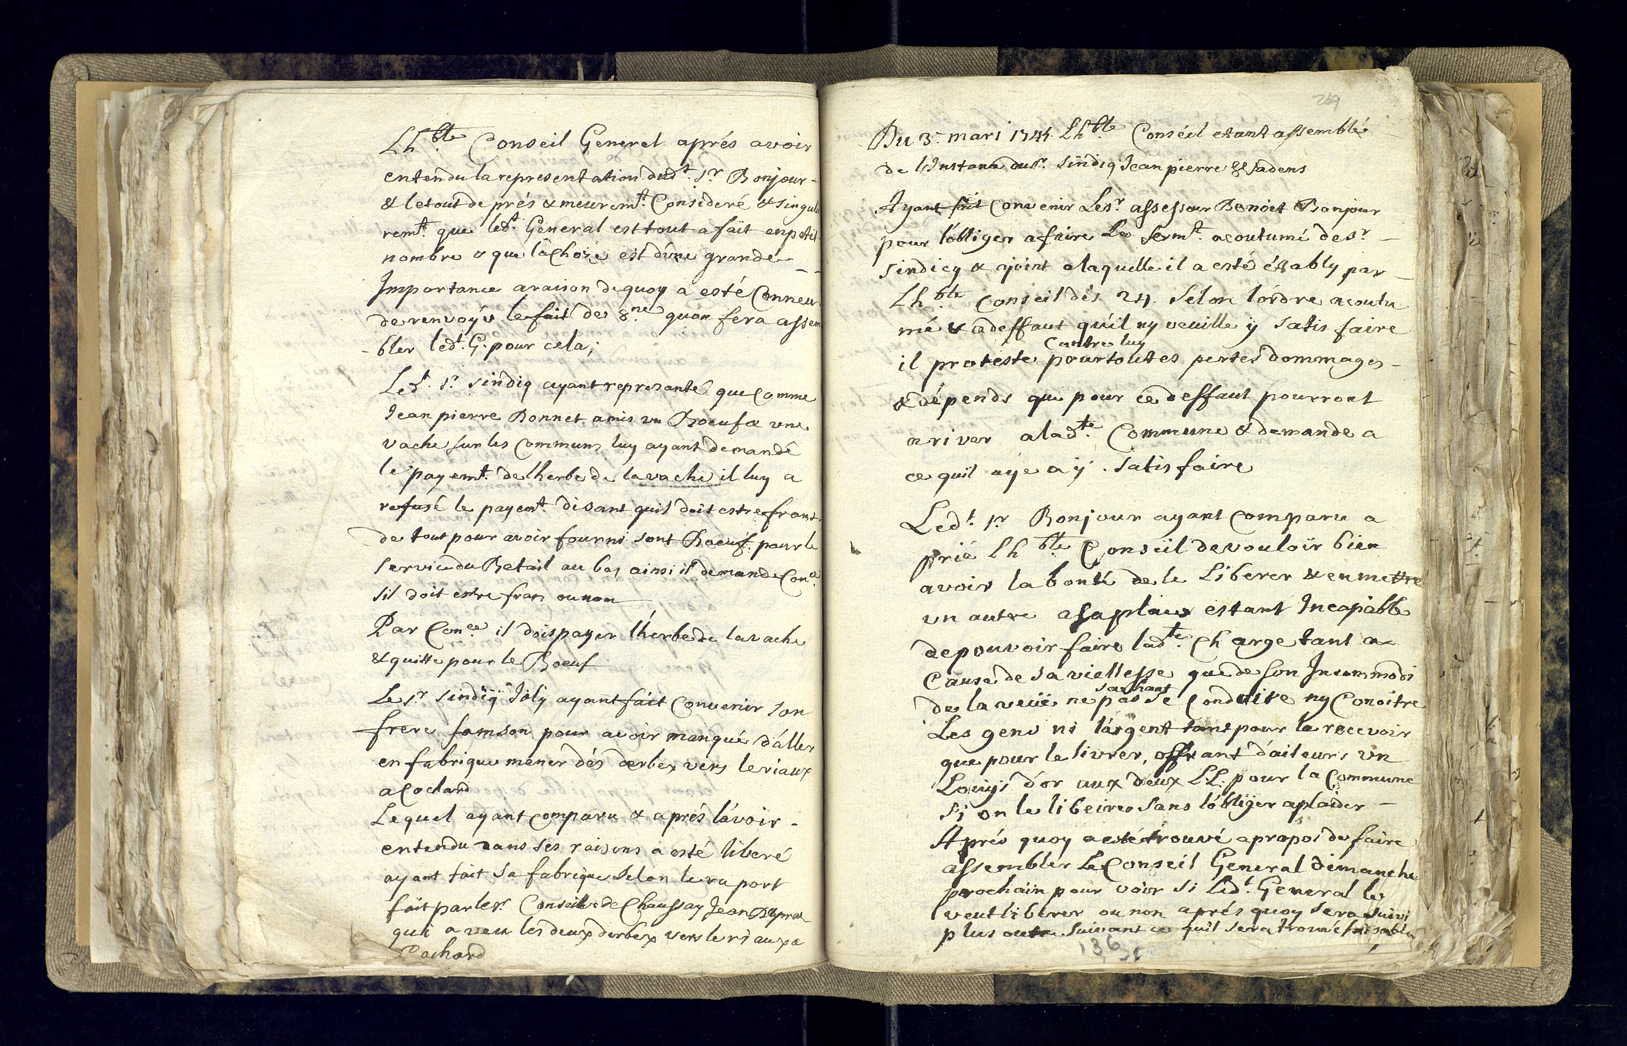 Lh.ble Conseil General aprés avoir
entendu la representation dudt. Sr Bonjour
& le tout de prés & meuremt. Consideré & singulie
remt. que ledt. General est tout a fait en petit
nombre & que la Chose est d'une grande
Importance a raison de quoy a esté Conneu
de renvoyér le fait de 8.ne quon fera assem
bler ledt. G. pour cela;
Ledt. Sr. Sindiq ayant representé que Comme
Jean pierre Bonnet a mis un Boeuf & une
vache sur les Communs luy ayant demandé
le payemt. de lherbe de la vache il luy a
refusé le payemt. disant quil doit estre franc
de tout pour avoir fourni sont Boeuf pour le
service du Betail au bas ainsi il demande Con.ce
Sil doit estre franc ou non
Par Con.ce il dois payer lherbe de la vache
& quitte pour le Boeuf
Le Sr Sindiq Joly ayant fait Convenir Son
frere Samson pour avoir manqué d'aller
en fabrique mener dés derbex vérs le riaux
a Cochard
Lequel ayant comparu & aprés l'avoir
entendu dans ses raisons a esté liberé
ayant fait sa fabrique selon le raport
fait par le Sr. Conseiller de Chaussay Jean Dupraz
quil a veu les deux derbex vers le riaux a
Cochard
269
Du 3. mari 1744 Lh.ble Conseil etant assemblé
de l'Instance du Sr. Sindiq Jean pierre &
Ayant fait Convenir Le Sr assesseur Benoet Bonjour
pour lobliger a faire Le Sermt. acoutumé de Sr
Sindicq & ajoint a laquelle il a esté établÿ par
Lh.ble Conseil dés 24. Selon l'ordre acoutu
mé & a deffaut qu'il ny veuille ÿ satisfaire
Contre luy
il proteste pour toutes pertes dommages
& dépends que pour ce deffaut pourront
ariver a ladte. Commune & demande a
ce quil aÿe a ÿ satisfaire
Ledt. Sr Bonjour ayant Comparu a
prié Lh.ble Conseil de vouloir bien
avoir la bonté de le Liberer & en mettre
un autre a sa place estant Incapable
de pouvoir faire ladte. Charge tant a
Cause de sa viellesse que de son Incommodi
sachant
de la veüe ne pas se Conduire ny Conoitre
Les gens ni l'argent tant pour le recevoir
que pour le livrer, offrant d'ailleurs un
Loüys d'or aux deux LL. pour la Commune
Si on le libeire sans lobliger a plaider
Aprés quoy a esté trouvé a propos de faire
assembler Le Conseil General dimanche
prochain pour voir si Ledt. General le
veut liberer ou non aprés quoy sera suivi
plus outre suivant ce quil sera trouvé faisable
136